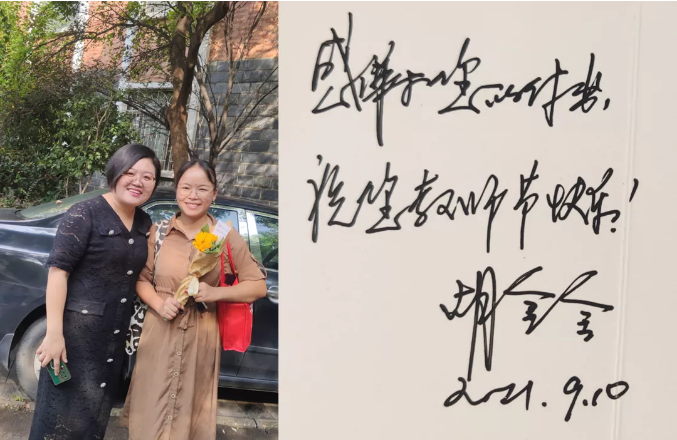 感谢您的付出,
祝您教师节快乐!
胡
2021.9.10